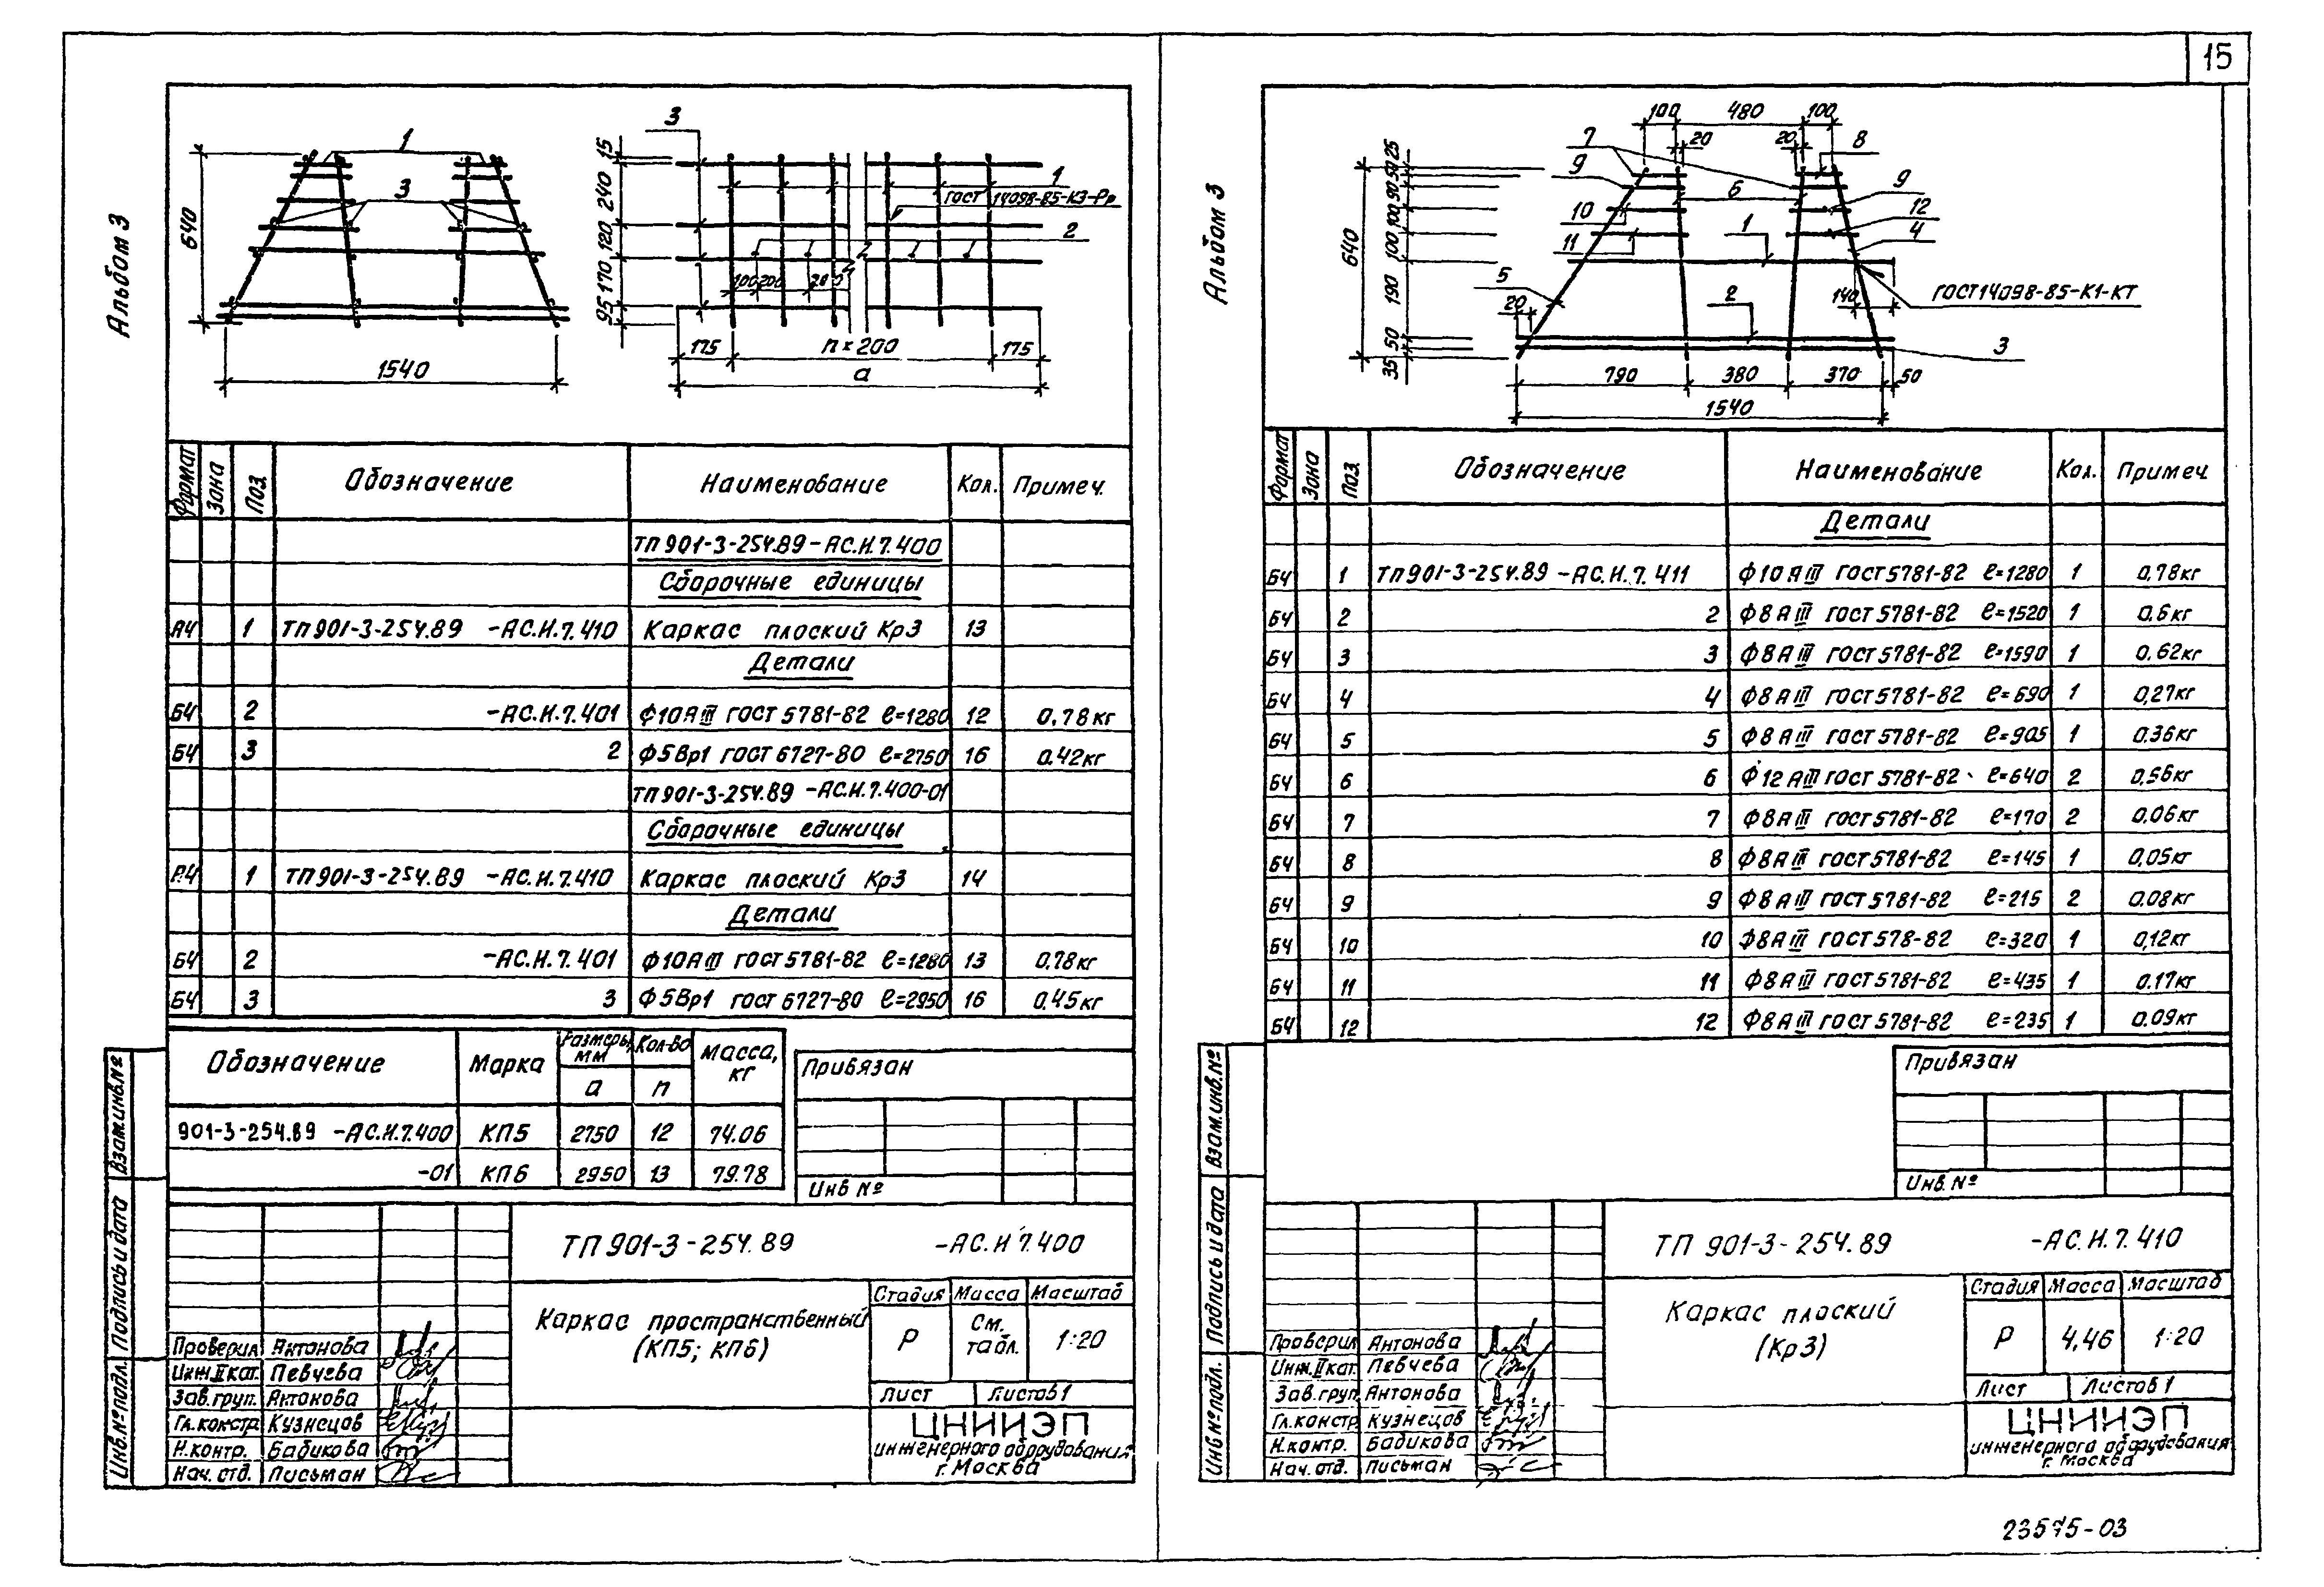 15
Альбом 3
1
3
640
1540
3
15
240
120
170
95
1
ГОСТ 14098-85-К3-Рр
2
100 200 200
175 п×200 175
а
Формат Зона Поз. Обозначение Наименование Кол. Примеч.
ТП 901-3-254.89-АС.И.7.400
Сборочные единицы
А4 1 ТП 901-3-254.89 -АС.И.7.410 Каркас плоский Кр3 13
Детали
БЧ 2 -АС.И.7.401 Ф10АIII ГОСТ 5781-82 ℓ=1280 12 0,78кг
БЧ 3 2 Ф5Вр1 ГОСТ 6727-80 ℓ=2750 16 0.42кг
ТП 901-3-254.89 -АС.И.7.400-01
Сборочные единицы
А4 1 ТП 901-3-254.89 -АС.И.7.410 Каркас плоский Кр3 14
Детали
БЧ 2 -АС.И.7.401 Ф10АIII ГОСТ 5781-82 ℓ=1280 13 0,78кг
БЧ 3 3 Ф5Вр1 ГОСТ 6727-80 ℓ=2950 16 0.45кг
Обозначение Марка Размеры, мм Кол-во Масса, кг
а п
901-3-254.89 -АС.И.7.400 КП5 2750 12 74.06
-01 КП6 2950 13 79.78
Привязан
Инв №
Взам.инв.№
Подпись и дата
Инв.№ подл.
ТП 901-3-254.89 -АС.И 7.400
Каркас пространственный
(КП5; КП6)
Стадия Масса Масштаб
Р См. табл. 1:20
Лист Листов 1
ЦНИИЭП
инженерного оборудования
г. Москва
Проверил Антонова
Инж.II кат. Певчева
Зав.груп. Антонова
Гл.констр. Кузнецов
Н.контр. Бабикова
Нач. отд. Письман
Альбом 3
100 480 100
20 20
7
9
8
6
9
10
12
11
1
4
5
2
3
20
140
ГОСТ 14098-85-К1-КТ
640
25
50
90
100
100
190
50
35
790 380 370 50
1540
Формат Зона Поз. Обозначение Наименование Кол. Примеч.
Детали
БЧ 1 ТП 901-3-254.89 -АС.И.7.411 Ф10АIII ГОСТ 5781-82 ℓ=1280 1 0,78кг
БЧ 2 2 Ф8АIII ГОСТ 5781-82 ℓ=1520 1 0.6кг
БЧ 3 3 Ф8АIII ГОСТ 5781-82 ℓ=1590 1 0.62кг
БЧ 4 4 Ф8АIII ГОСТ 5781-82 ℓ=690 1 0,27кг
БЧ 5 5 Ф8АIII ГОСТ 5781-82 ℓ=905 1 0.36кг
БЧ 6 6 Ф12АIII ГОСТ 5781-82 ℓ=640 2 0,56кг
БЧ 7 7 Ф8АIII ГОСТ 5781-82 ℓ=170 2 0,06кг
БЧ 8 8 Ф8АIII ГОСТ 5781-82 ℓ=145 1 0,05кг
БЧ 9 9 Ф8АIII ГОСТ 5781-82 ℓ=215 2 0.08кг
БЧ 10 10 Ф8АIII ГОСТ 578-82 ℓ=320 1 0,12кг
БЧ 11 11 Ф8АIII ГОСТ 5781-82 ℓ=435 1 0.17кг
БЧ 12 12 Ф8АIII ГОСТ 5781-82 ℓ=235 1 0.09кг
Привязан
Инв. №
Взам.инв.№
Подпись и дата
Инв.№ подл.
ТП 901-3-254.89 -АС.И.7.410
Каркас плоский
(Кр3)
Стадия Масса Масштаб
Р 4,46 1:20
Лист Листов 1
ЦНИИЭП
инженерного оборудования
г. Москва
Проверил Антонова
Инж.II кат. Певчева
Зав.груп. Антонова
Гл.констр. Кузнецов
Н.контр. Бабикова
Нач.отд. Письман
23575-03